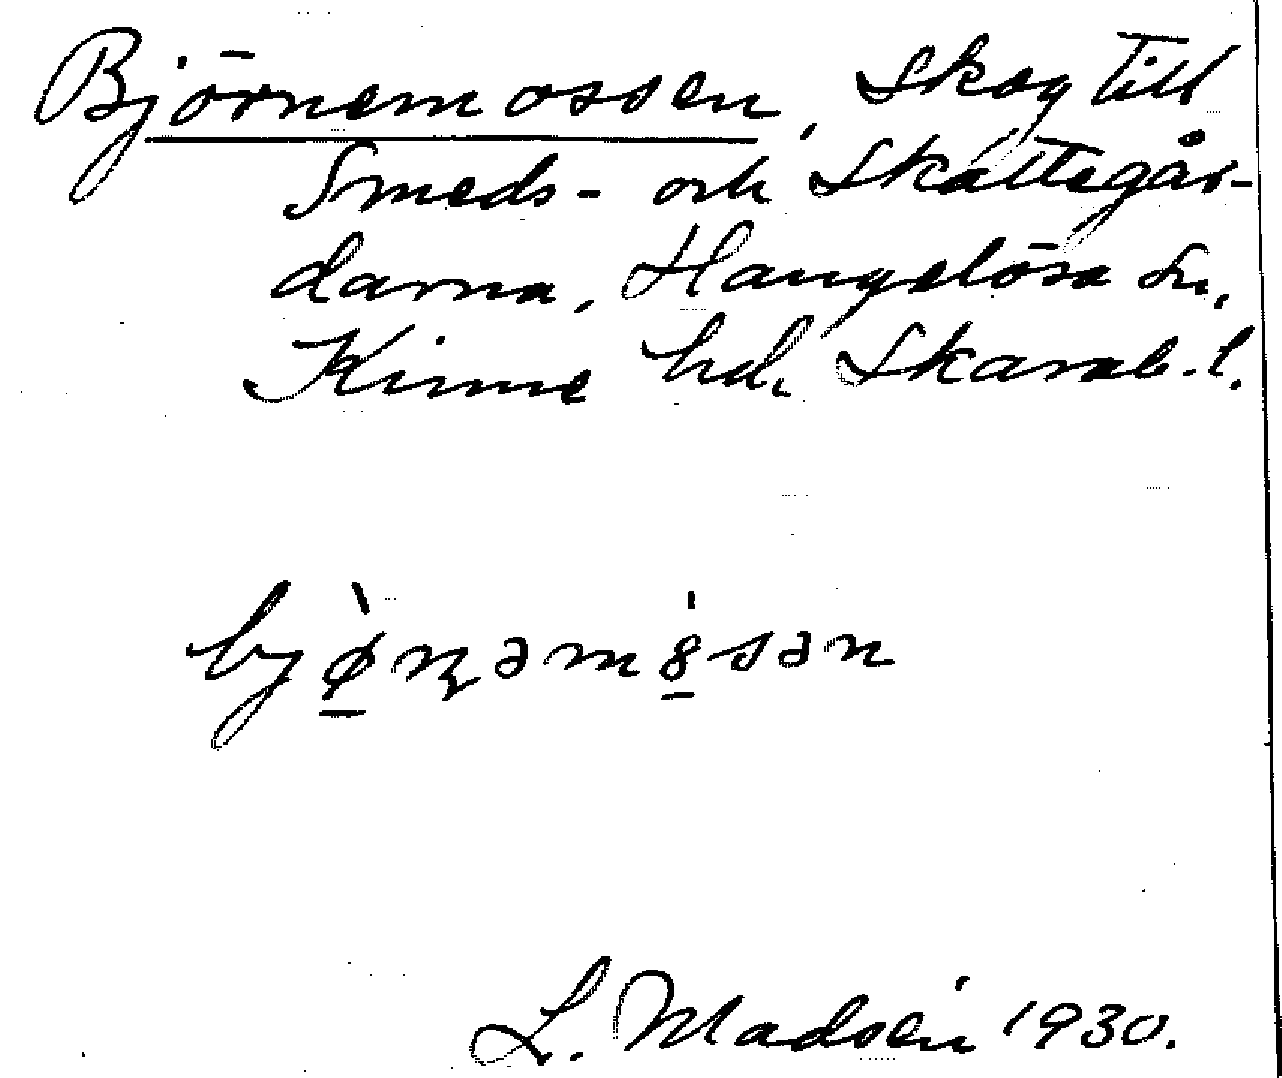 Björnemossen, skog till
Smeds- och Skattegår-
darna, Hangelösa sn,
Kinne hd, Skarab. l.
bjø̀ṇəmȣ́sən
L. Madsén 1930.